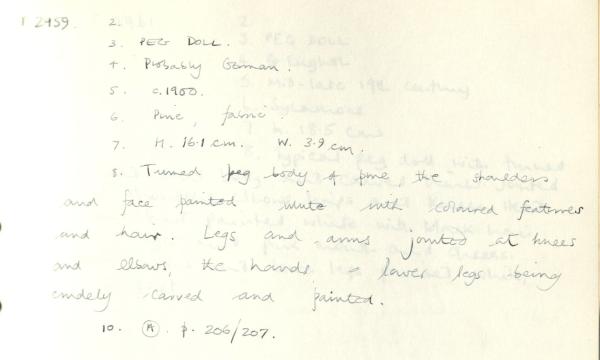 I 2459. 2.
3. PEG DOLL.
4. Probably German.
5. c.1900.
6. Pine, fabric.
7. H. 16.1 cm. W. 3.9 cm.
8. Turned peg body of pine the shoulders
and face painted white with coloured features
and hair. Legs and arms jointed at knees
and elbows, the hands & lower legs being
crudely carved and painted.
10. (A). p. 206/207.